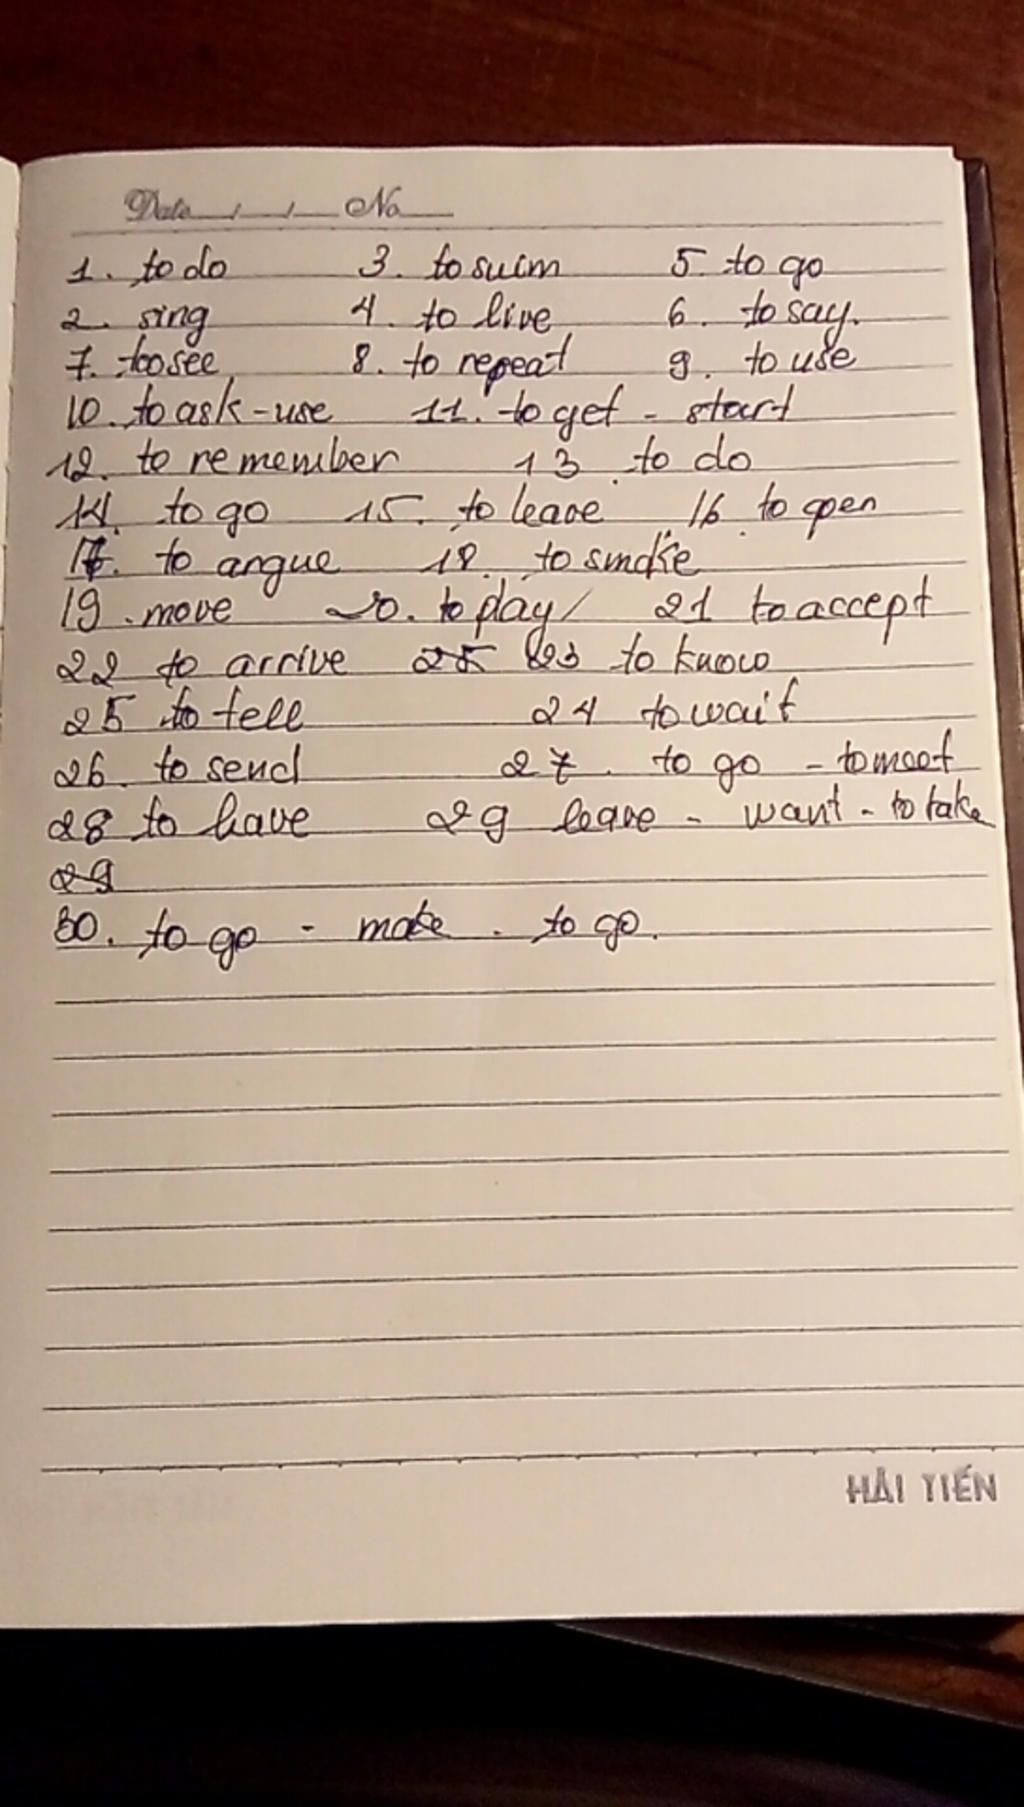 Date / / No
1. to do 3. to swim 5. to go
2. sing 4. to live 6. to say.
7. to see 8. to repeat 9. to use
10. to ask - use 11. to get - start
12. to remember 13. to do
14. to go 15. to leave 16. to open
17. to argue 18. to smoke
19. move 20. to play / 21 to accept
22 to arrive 25 23 to know
25 to tell 24 to wait
26. to send 27. to go - to meet
28 to have 29 leave - want - to take
29
30. to go - make - to go.
HẢI TIẾN